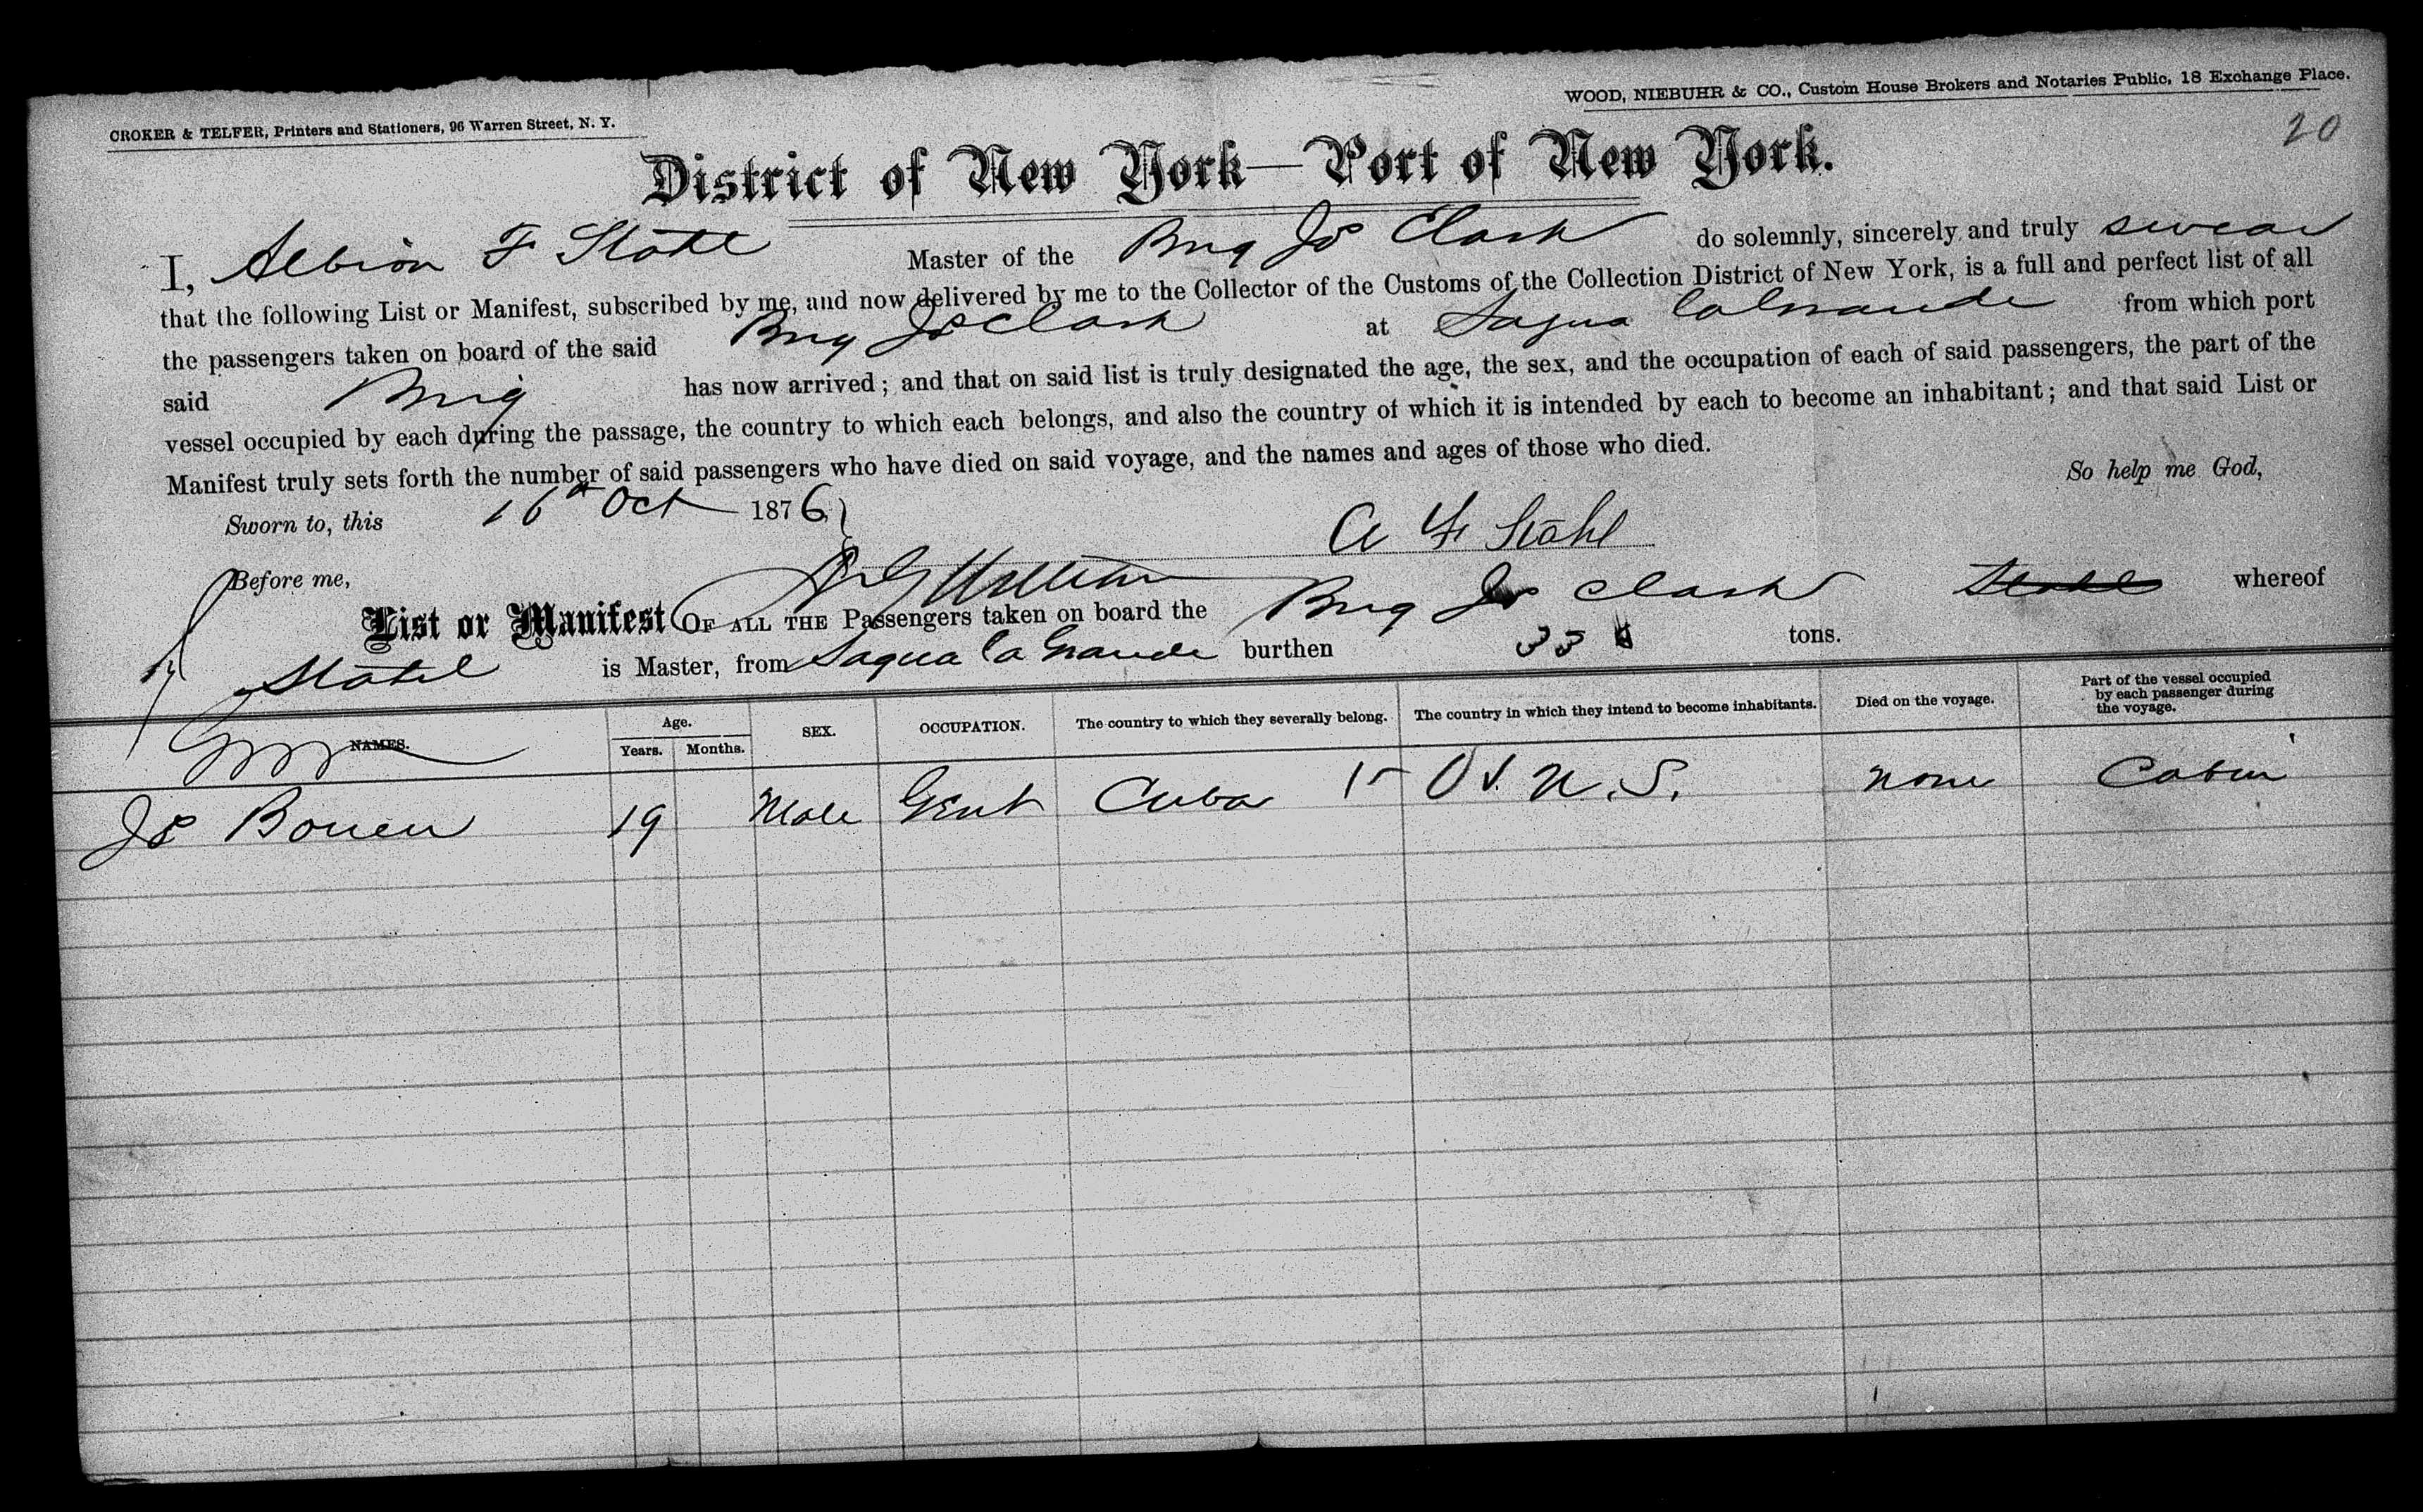 CROKER & TELFER, Printers and Stationers, 96 Warren Street, N. Y.
WOOD, NIEBUHR & CO., Custom House Brokers and Notaries Public, 18 Exchange Place.
20
District of New York—Port of New York.
I, Albion F Stahl Master of the Brig Js Clark do solemnly, sincerely and truly swear
that the following List or Manifest, subscribed by me, and now delivered by me to the Collector of the Customs of the Collection District of New York, is a full and perfect list of all
the passengers taken on board of the said Brig Js Clark at Sagua la Grande from which port
said Brig has now arrived; and that on said list is truly designated the age, the sex, and the occupation of each of said passengers, the part of the
vessel occupied by each during the passage, the country to which each belongs, and also the country of which it is intended by each to become an inhabitant; and that said List or
Manifest truly sets forth the number of said passengers who have died on said voyage, and the names and ages of those who died.
So help me God,
Sworn to, this 16th Oct 1876
A F Stahl
Before me,
List or Manifest OF ALL THE Passengers taken on board the Brig Js Clark Stahl whereof
Stahl is Master, from Sagua la Grande burthen tons.
NAMES. Age. Years. Months. SEX. OCCUPATION. The country to which they severally belong. The country in which they intend to become inhabitants. Died on the voyage. Part of the vessel occupied by each passenger during the voyage.
Js Bouen 19 Male Gent Cuba U.S. none Cabin